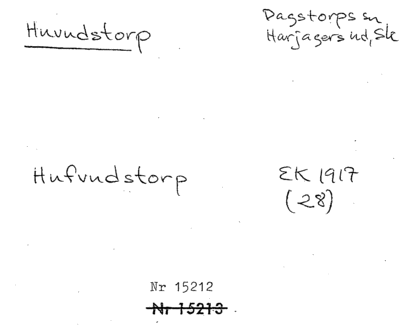 Huvudstorp
Dagstorps sn
Harjagers hd, Sk
Hufvudstorp
EK 1917
(28)
Nr 15212
Nr 15213